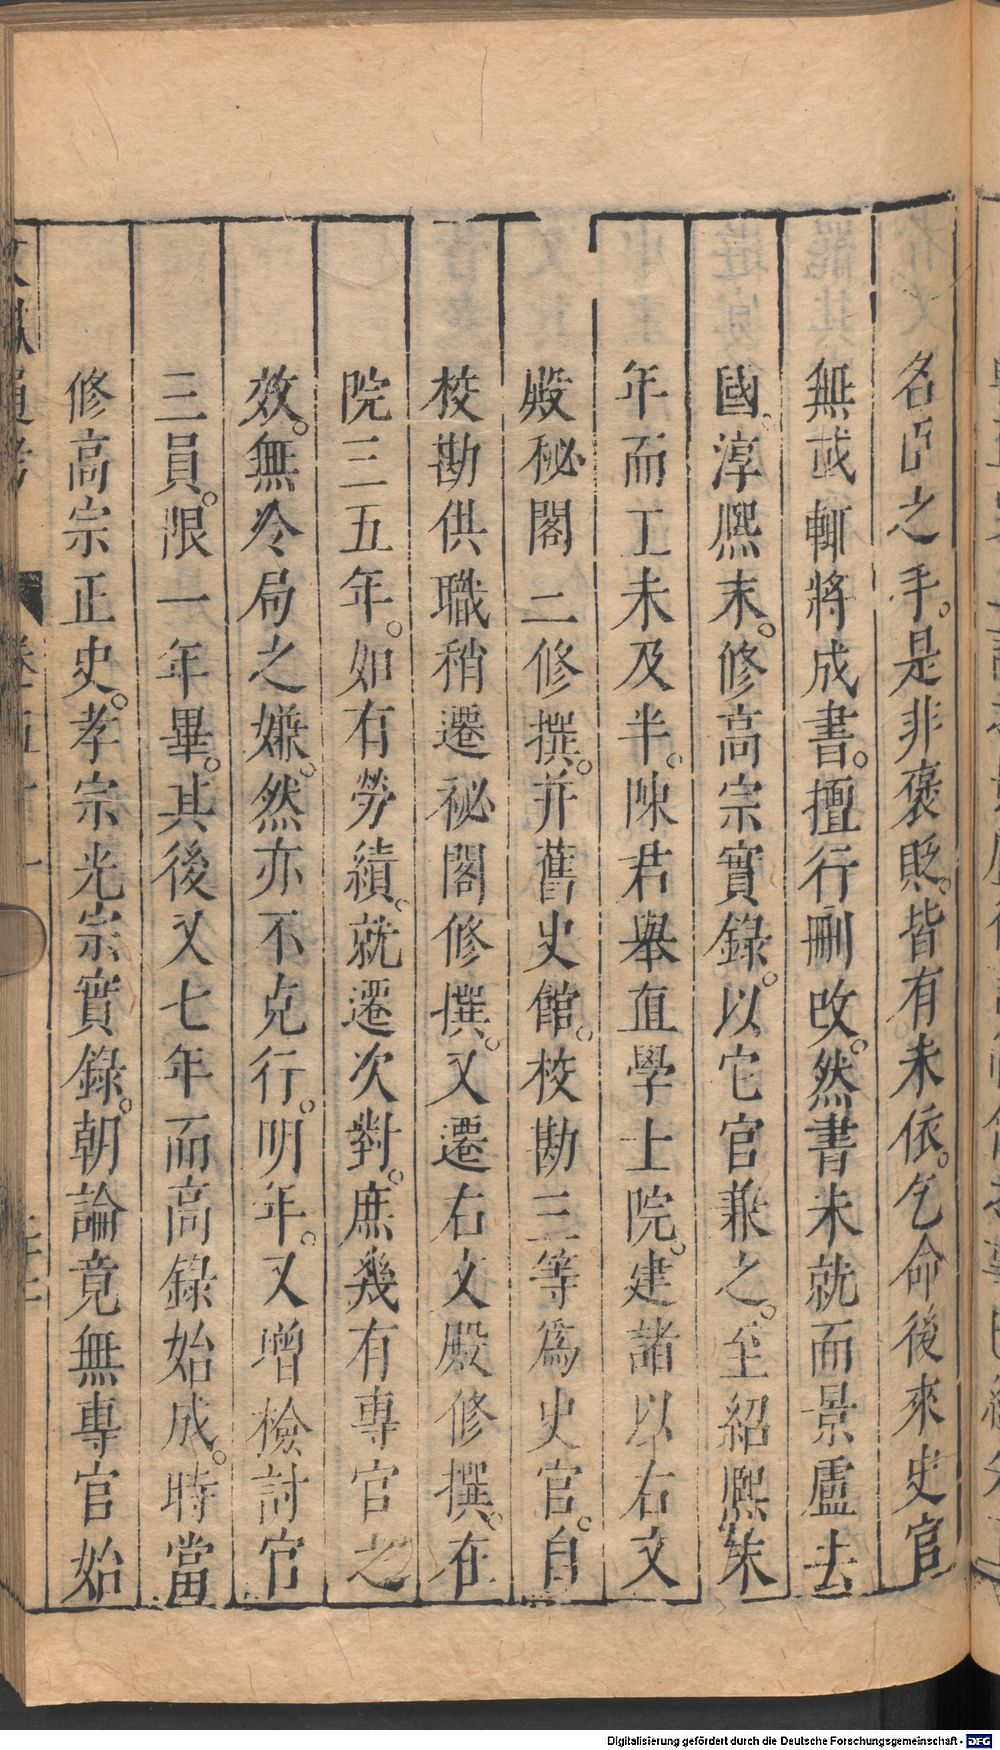 名臣之手。是非褒貶。皆有未依。乞命後來史官
無或輒將成書。擅行刪改。然書未就而景盧去
國。淳熙末。修高宗實錄。以它官兼之。至紹熙末
年而工未及半。陳君舉直學士院。建諸以右文
殿秘閣二修撰。并舊史館。校勘三等為史官。自
校勘供職稍遷祕閣修撰。又遷右文殿修撰。在
院三五年。如有勞績。就遷次對。庶幾有專官之
效。無冷局之嫌。然亦不克行。明年。又增檢討官
三員。限一年畢。其後又七年而高錄始成。時當
修高宗正史。孝宗光宗實錄。朝論竟無專官始
文獻通考 卷五十一
Digitalisierung gefördert durch die Deutsche Forschungsgemeinschaft - DFG